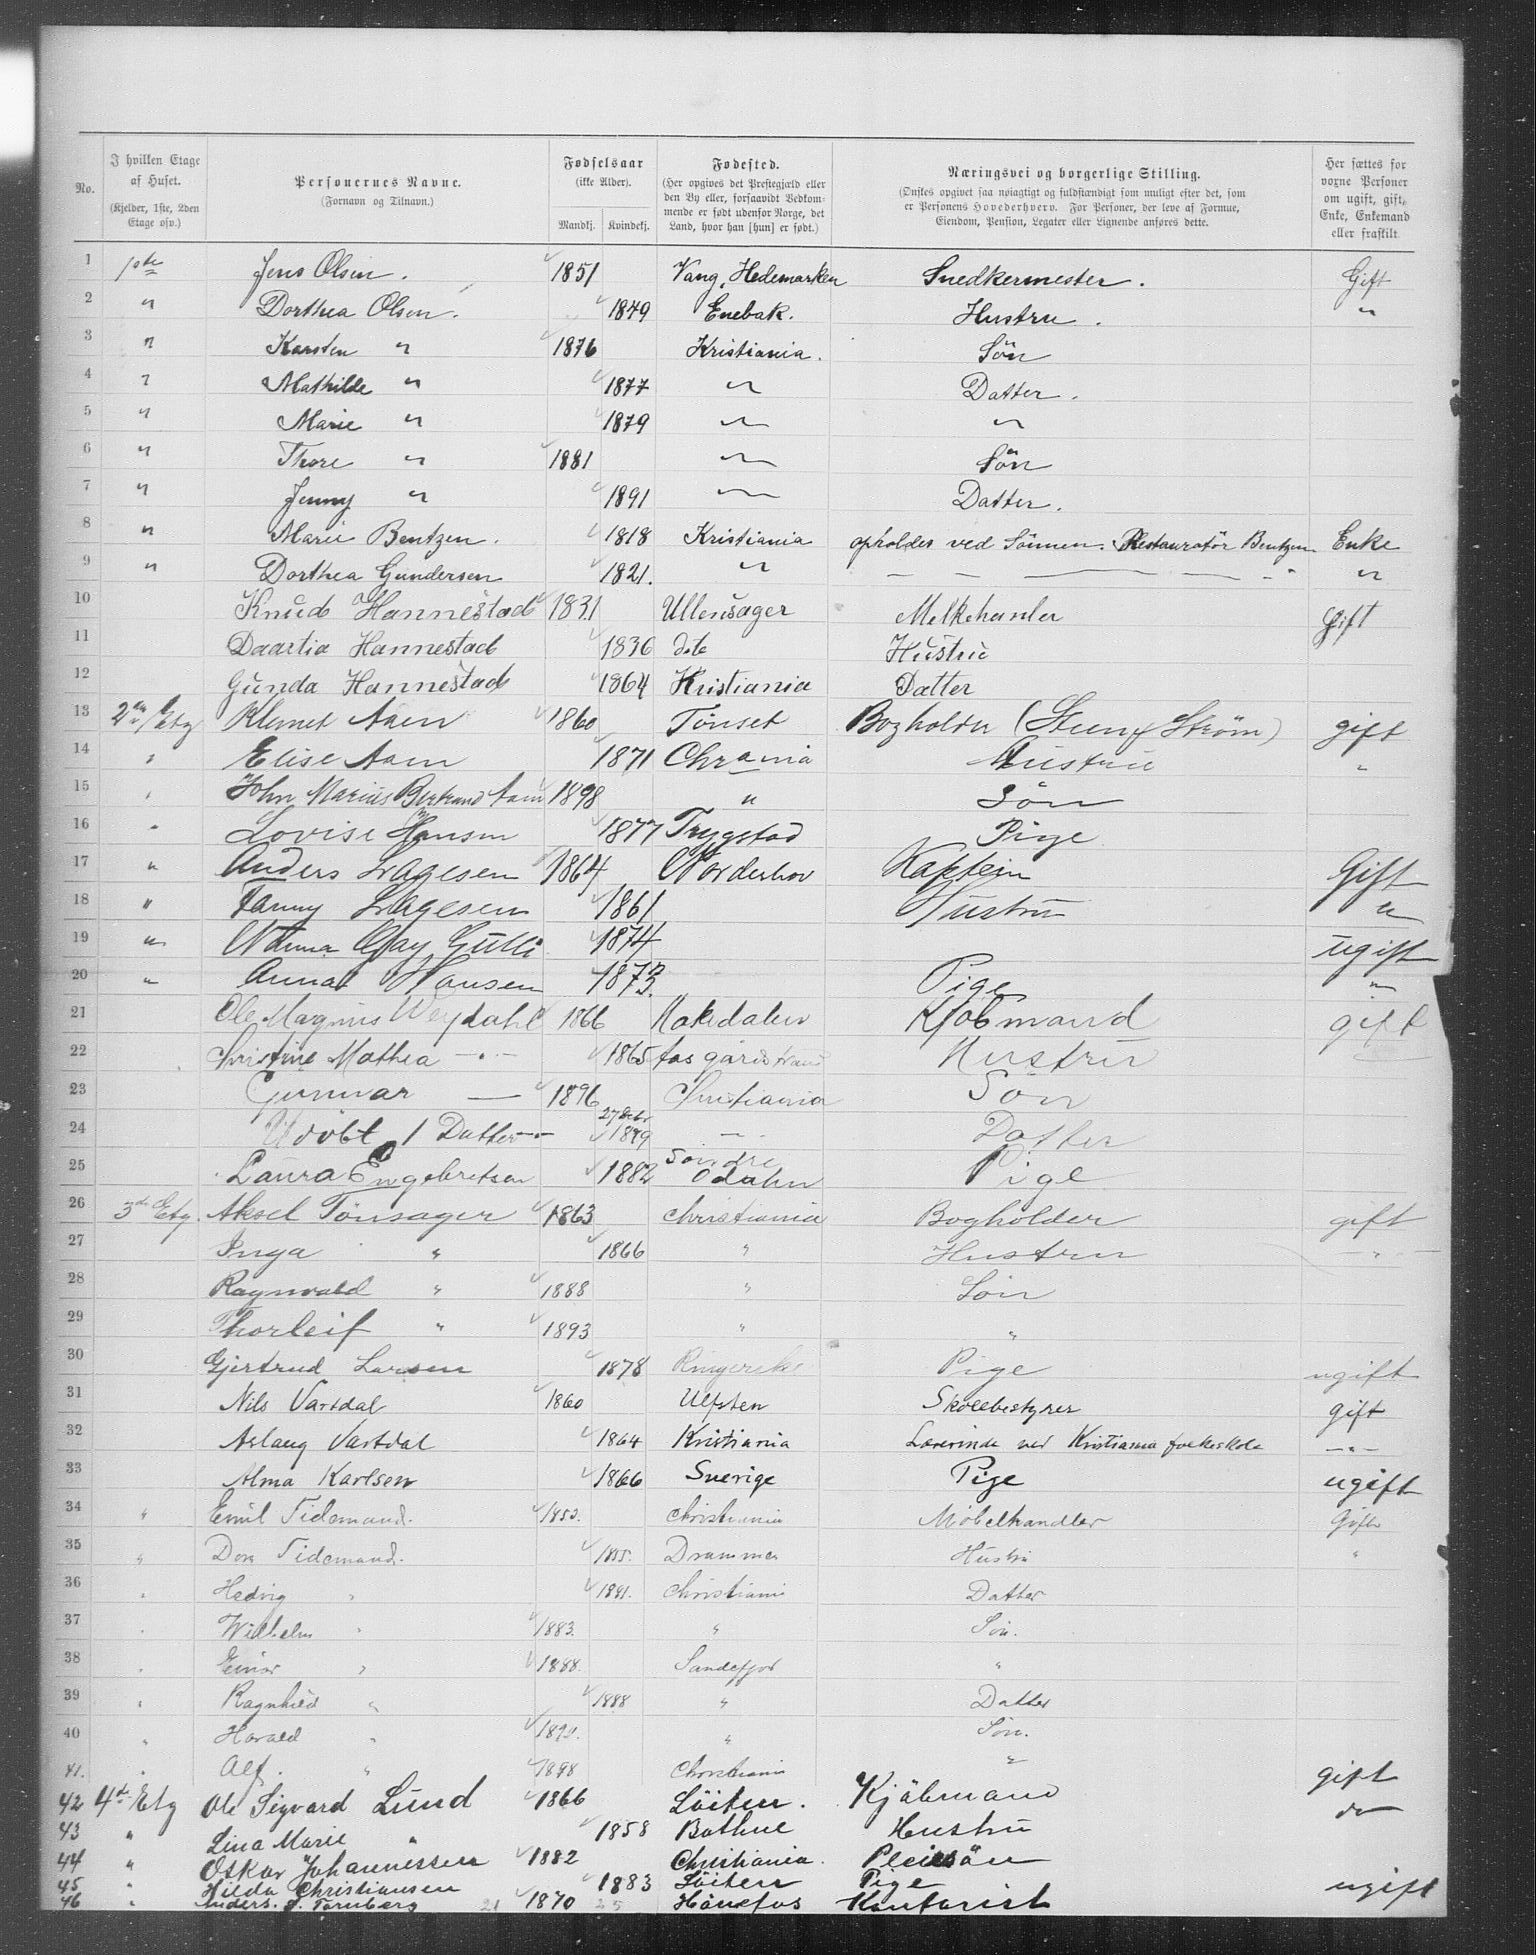 No. | I hvilken Etage af Huset. (Kjelder, 1ste, 2den Etage osv.) | Personernes Navne. (Fornavn og Tilnavn.) | Fødselsaar (ikke Alder). Mandkj. Kvindekj. | Fødested. (Her opgives det Prestegjæld eller den By eller, forsaavidt Bedkommende er født udenfor Norge, det Land, hvor han [hun] er født.) | Næringsvei og borgerlige Stilling. (Ønskes opgivet saa nøiagtigt og fuldstændigt som muligt efter det, som er Personens Hovederhverv. For Personer, der leve af Formue, Eiendom, Pension, Legater eller Lignende anføres dette. | Her sættes for voxne Personer om ugift, gift, Enke, Enkemand eller fraskilt
1 1ste Jens Olsen. 1851 Vang, Hedemarken Snedkermester. Gift
2 " Dorthea Olsen. 1849 Enebak. Hustru. "
3 " Karsten " 1876 Kristiania. Sön
4 " Mathilde " 1877 " Datter.
5 " Marie " 1879 " "
6 " Thore " 1881 " Sön
7 " Jenny " 1891 " Datter.
8 " Marie Bentzen. 1818 Kristiania opholdes ved Sönnen. Restauratör Bentzen Enke
9 " Dorthea Gundersen 1821. " — — — — - " "
10 Knud Hannestad 1831 Ullensager Melkehanler Gift
11 Daartia Hannestad 1836 dito Hustru
12 Gunda Hannestad 1864 Kristiania Datter
13 2en Etg Klemet Aaen 1860 Tønset Bogholder (Steen & Strøm) gift
14 " Elise Aaen 1871 Chrania Hustru "
15 " John Marius Bertrand Aaen 1898 " Sön
16 " Lovise Hansen 1877 Trygstad Pige
17 " Anders Lagesen 1864 Norderhov Kaptein Gift
18 " Fanny Lagesen 1861 Hustru "
19 " Gay Gulli 1874 ugift
20 " Anna Hansen 1873. Pige "
21 Ole Magnus Weydahl 1866 Nakedalen Kjøbmand gift
22 Christine Mathea -"- 1865 Aasgaardstrand Hustru
23 Gunnar — 1896 Christiania Sön
24 Udöbt 1 Datter -"- 27 1899 -"- Datter
25 Laura Engebretsen 1882 Söndre Odahn Pige
26 3die Etg. Aksel Tönsager 1863 Christiania Bogholder gift
27 Inga " 1866 " Hustru -"-
28 Ragnvald " 1888 " Sön
29 Thorleif " 1893 " "
30 Gjertrud Larsen 1878 Ringerike Pige ugift
31 Nils Vartdal 1860 Ulfsten Skolebestyrer gift
32 Aslaug Vartdal 1864 Kristiania Lærerinde ved Kristiania folkeskole -"-
33 Alma Karlsen 1866 Sverige Pige ugift
34 " Emil Tidemand. 1853. Christiania Möbelhandler Gift
35 " Dora Tidemand. 1855. Drammen Hustru "
36 " Hedvig " 1881. Christiania Datter
37 " Wilhelm " 1883. " Sön.
38 " Einar " 1888. Sandefjor "
39 " Ragnhild " 1888 " Datter
40 " Harald " " Sön.
41. " Alf. " 1898 Christiania "
42 4de Etg Ole Sigvard Lund 1866 Löiten. Kjöbmand gift
43 " Lina Marie " 1858 Botkne Hustru do
44 " Oskar Johannessen 1882 Christiania. Pleiesön
45 " Hilda Christiansen 1883 Löiten Pige ugift
46 " Anders. J. Tornberg 21 1870 25 Hönefos Kontorist